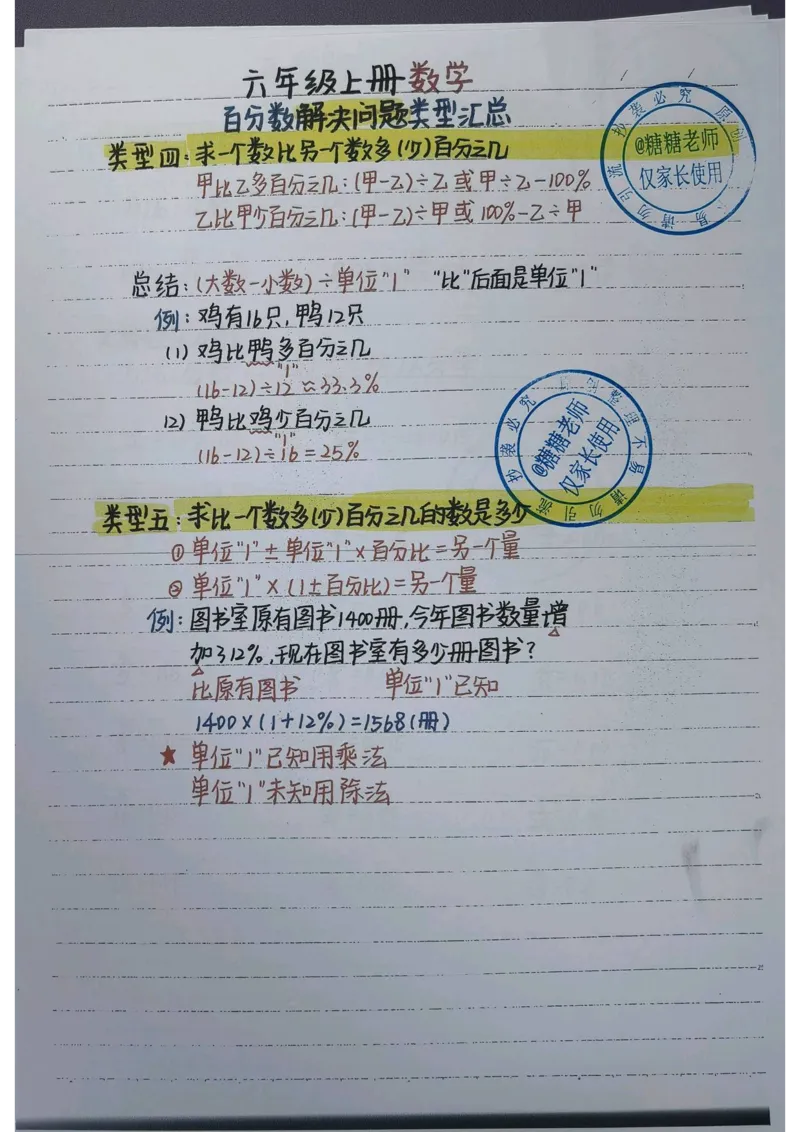 六年级上册数学
百分数解决问题类型汇总
类型四:求一个数比另一个数多(少)百分之几
甲比乙多百分之几:(甲-乙)÷乙或甲÷乙-100%
乙比甲少百分之几:(甲-乙)÷甲或100%-乙÷甲
@糖糖老师
仅家长使用
抄袭必究 原创不易 请勿引流
总结:(大数-小数)÷单位"1" "比"后面是单位"1"
例:鸡有16只,鸭12只
(1) 鸡比鸭多百分之几
"1"
(16-12)÷12≈33.3%
(2) 鸭比鸡少百分之几
"1"
(16-12)÷16=25%
@糖糖老师
仅家长使用
抄袭必究 原创不易 请勿引流
类型五:求比一个数多(少)百分之几的数是多少
①单位"1"±单位"1"×百分比=另一个量
②单位"1"×(1±百分比)=另一个量
例:图书室原有图书1400册,今年图书数量增
加了12%,现在图书室有多少册图书?
比原有图书 单位"1"已知
1400×(1+12%)=1568(册)
★ 单位"1"已知用乘法
单位"1"未知用除法